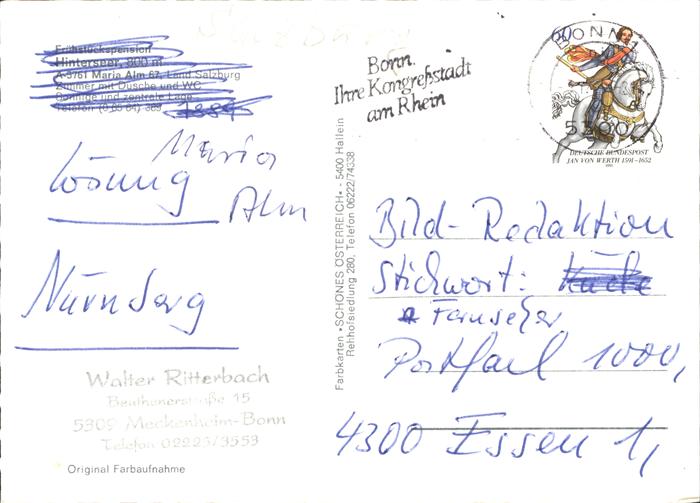 Frühstückspension
Hinterseer, 800 m
A-5761 Maria Alm 67, Land Salzburg
Zimmer mit Dusche und WC
Sonnige und zentrale Lage
Telefon (0 65 84) 389
Maria
Alm
Lösung
Nürnberg
Walter Ritterbach
Beuthenerstraße 15
5309 Meckenheim-Bonn
Telefon 02225/3553
Original Farbaufnahme
Farbkarten »SCHÖNES ÖSTERREICH« - 5400 Hallein
Rehhofsiedlung 280, Telefon 06222/74338
Bonn.
Ihre Kongreßstadt
am Rhein
BONN 1
5300
60
DEUTSCHE BUNDESPOST
JAN VON WERTH 1591-1652
Bild-Redaktion
Stichwort:
Fernseher
Postfach 1000,
4300 Essen 1,